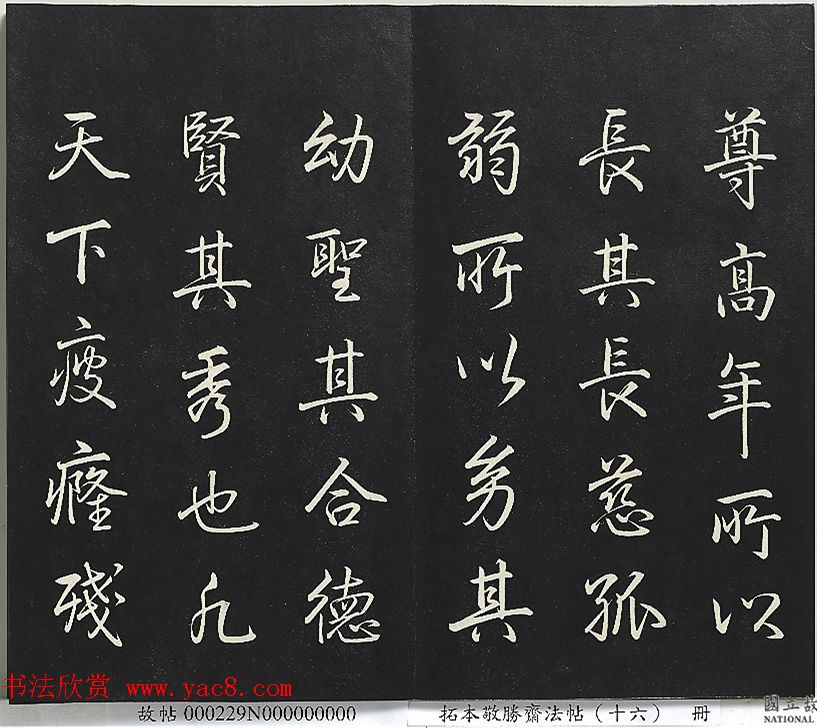 尊髙年所以
長其長慈孤
弱所以㓜其
幼聖其合德
賢其秀也凡
天下疲癃殘
书法欣赏 www.yac8.com
故帖 000229N000000000
拓本敬勝齋法帖（十六） 冊
國立故
NATIONAL